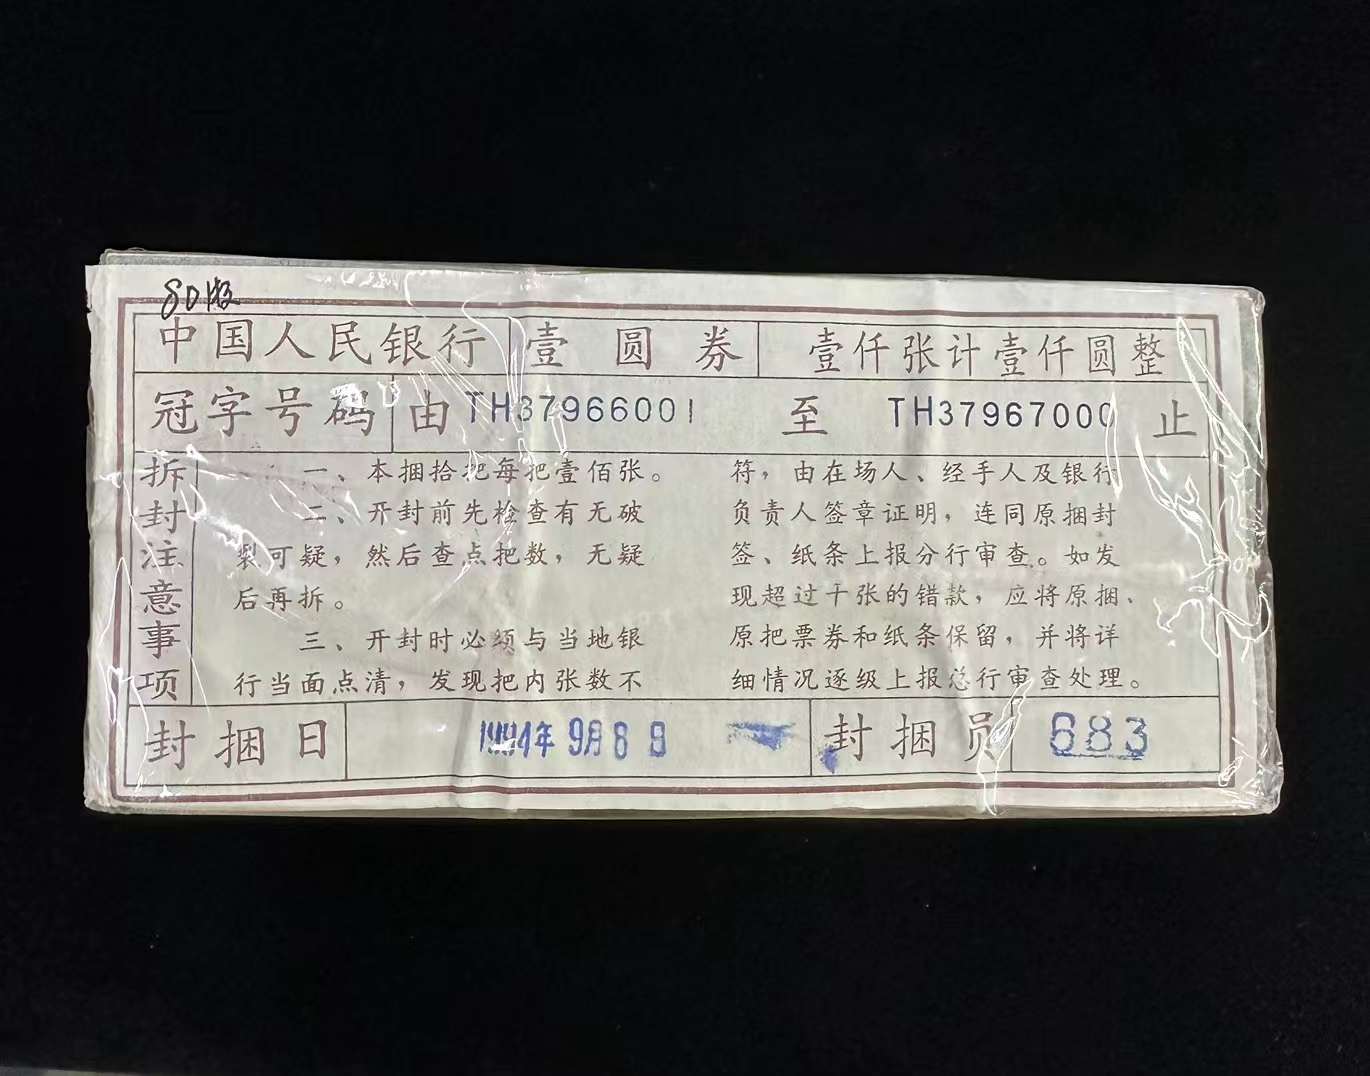 80版
中国人民银行 壹圆券 壹仟张计壹仟圆整
冠字号码 由 TH37966001 至 TH37967000 止
拆封注意事项
一、本捆拾把每把壹佰张。
二、开封前先检查有无破
裂可疑，然后查点把数，无疑
后再拆。
三、开封时必须与当地银
行当面点清，发现把内张数不
符，由在场人、经手人及银行
负责人签章证明，连同原捆封
签、纸条上报分行审查。如发
现超过千张的错款，应将原捆、
原把票券和纸条保留，并将详
细情况逐级上报总行审查处理。
封捆日 1994年9月6日 封捆员 683